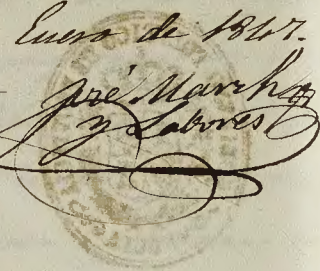 Enero de 1847.
José March
y Labores